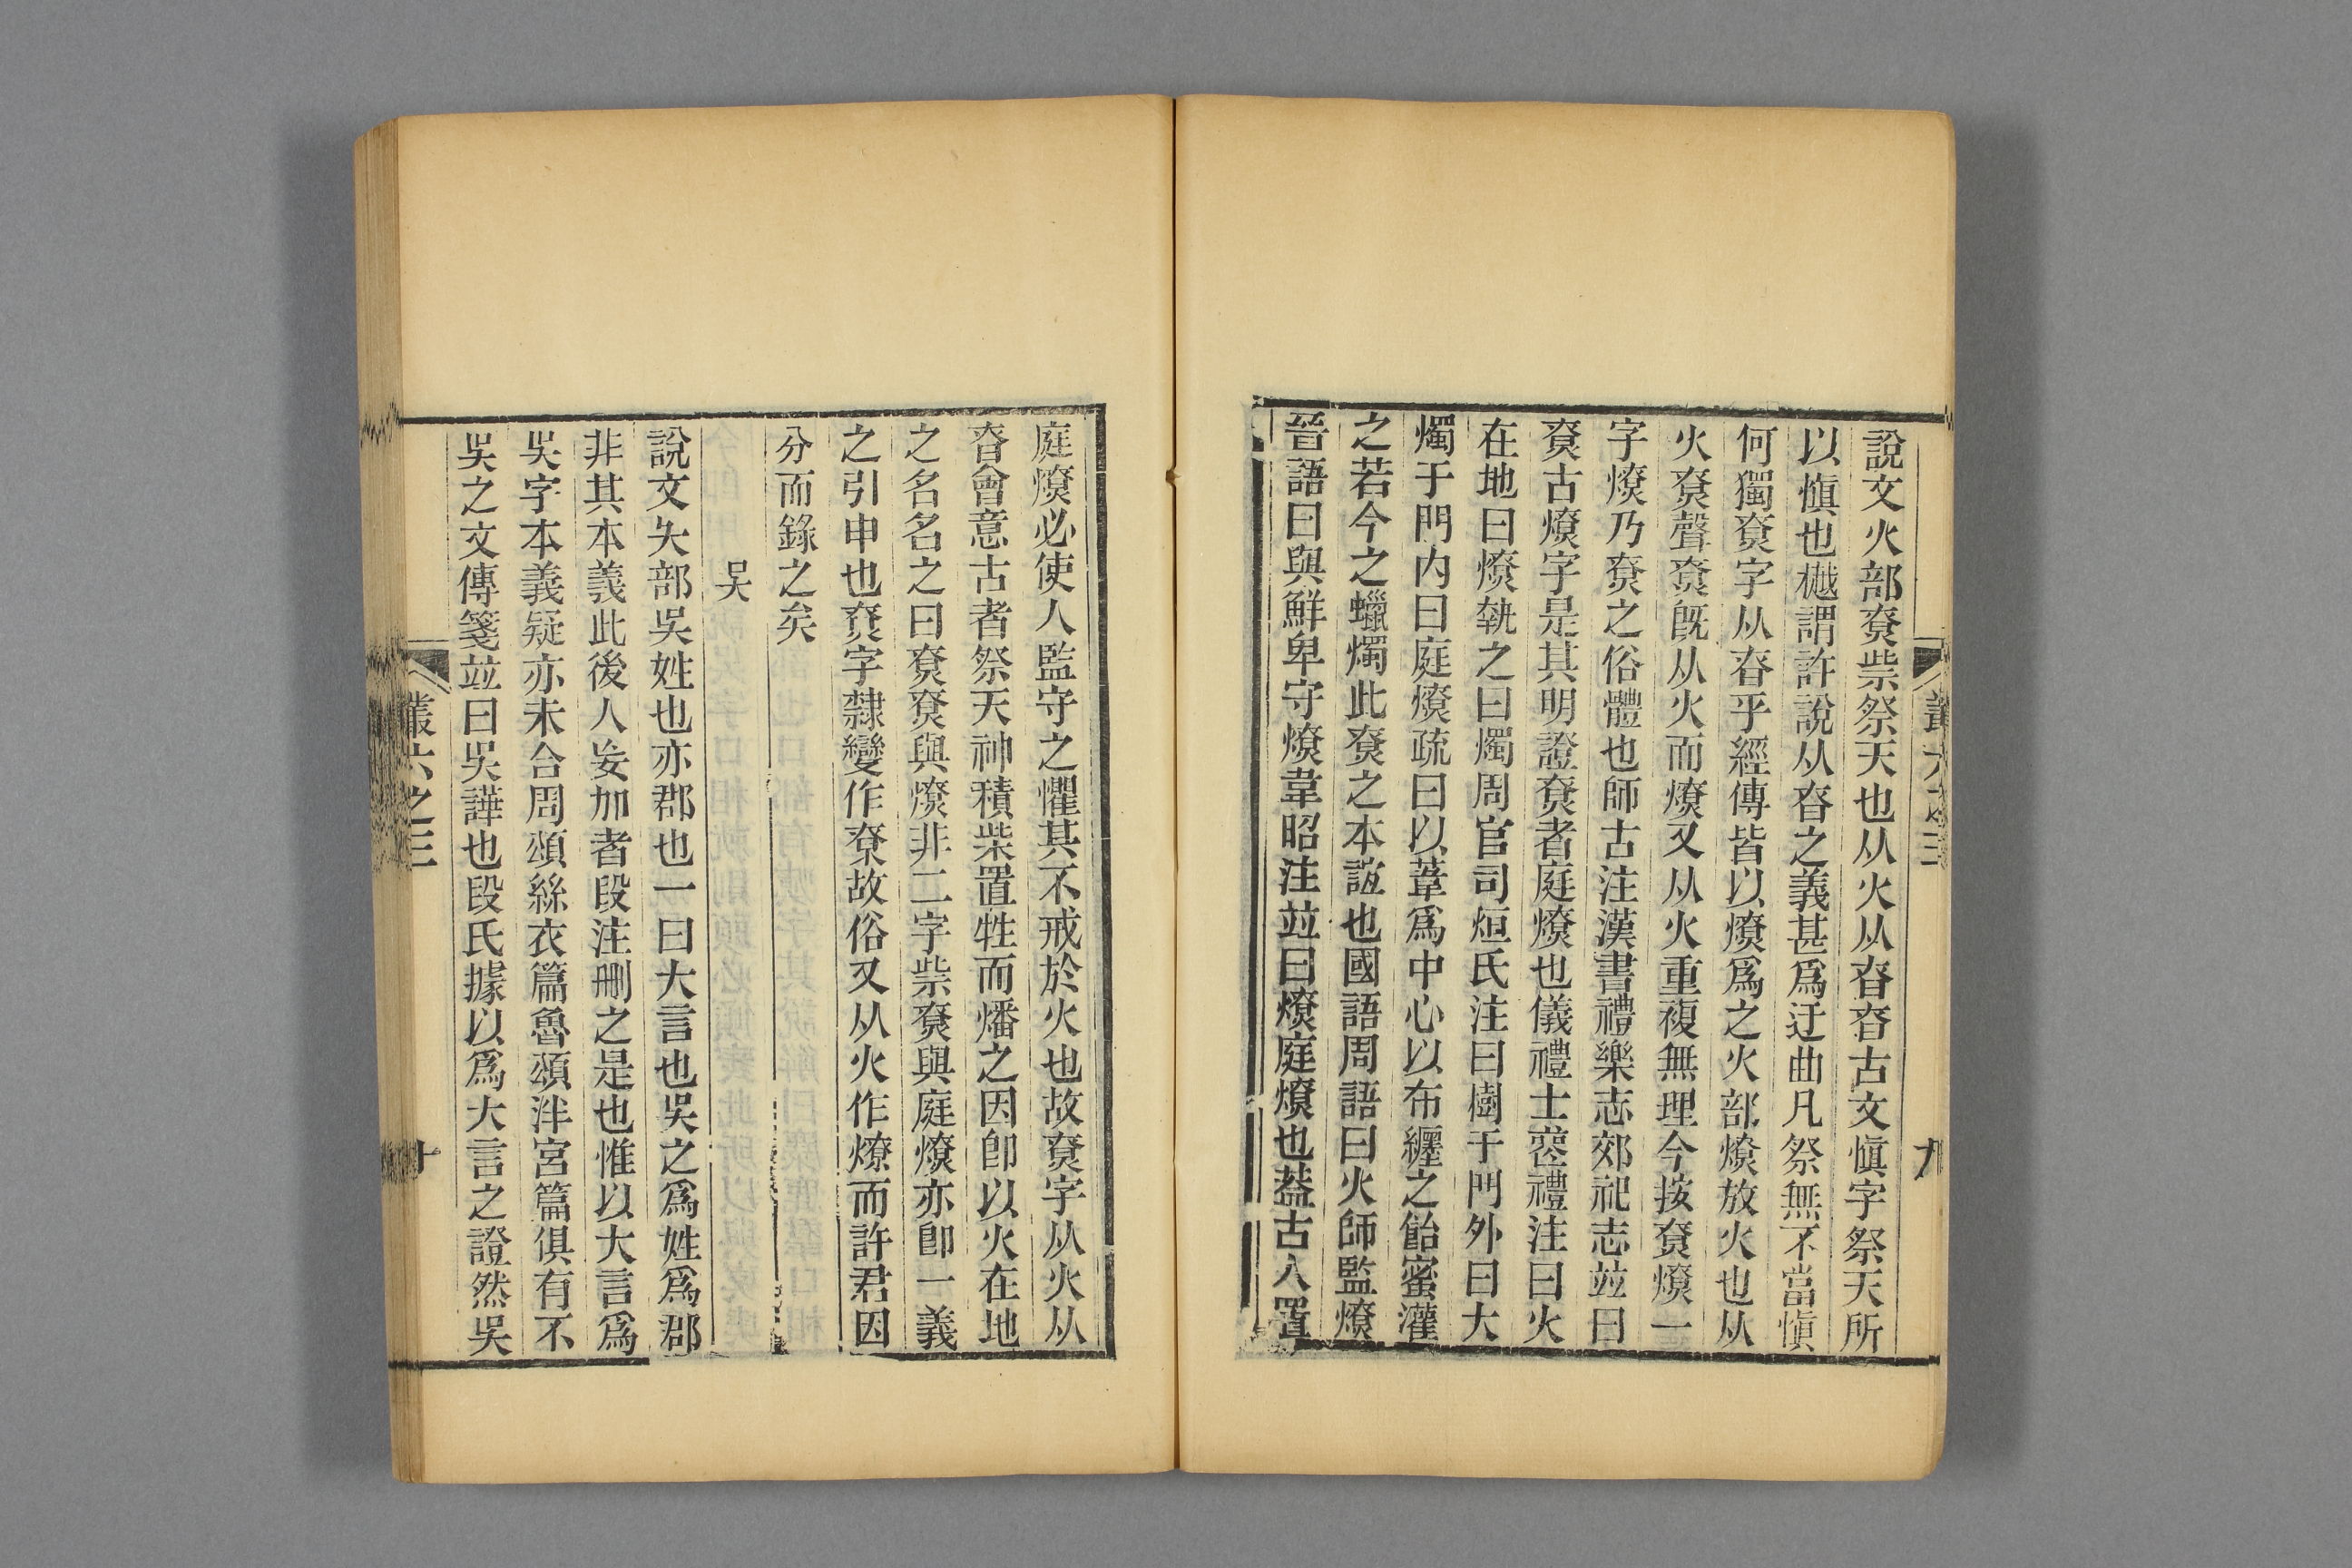 說文火部尞祡祭天也从火从昚昚古文愼字祭天所
以愼也樾謂許說从昚之義甚爲迂曲凡祭無不當愼
何獨尞字从昚乎經傳皆以燎爲之火部燎放火也从
火尞聲尞旣从火而燎又从火重複無理今按尞燎一
字燎乃尞之俗體也師古注漢書禮樂志郊祀志竝曰
尞古燎字是其明證尞者庭燎也儀禮士喪禮注曰火
在地曰燎執之曰燭周官司烜氏注曰樹于門外曰大
燭于門内曰庭燎疏曰以葦爲中心以布纏之飴蜜灌
之若今之蠟燭此尞之本誼也國語周語曰火師監燎
晉語曰與鮮卑守燎韋昭注竝曰燎庭燎也葢古人置
叢六之三
九
庭燎必使人監守之懼其不戒於火也故尞字从火从
昚會意古者祭天神積柴置牲而燔之因卽以火在地
之名名之曰尞尞與燎非二字祡尞與庭燎亦卽一義
之引申也尞字隸變作寮故俗又从火作燎而許君因
分而錄之矣
吳
說文夨部吳姓也亦郡也一曰大言也吳之爲姓爲郡
非其本義此後人妄加者段注刪之是也惟以大言爲
吳字本義疑亦未合周頌絲衣篇魯頌泮宮篇俱有不
吳之文傳箋竝曰吳譁也段氏據以爲大言之證然吳
叢六之三
十